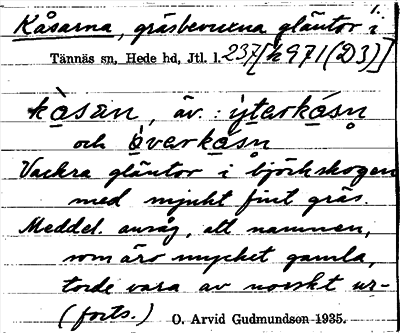 1.
Kåsarna, gräsbevuxna gläntor i
Tännäs sn, Hede hd, Jtl. l. 237 [h971(D3)]
kåsan, äv.: ýtarkåsn
och òvarkåsn
Vackra gläntor i björkskogen
med mjukt fint gräs.
Meddel. ansåg, att namnen,
som äro mycket gamla,
torde vara av norskt ur-
(forts.) O. Arvid Gudmundson 1935.